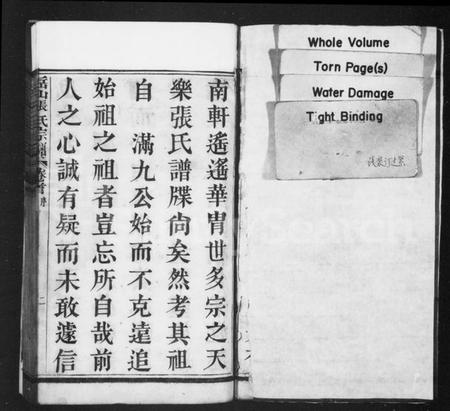 南軒遙遙華胄世多宗之天
樂張氏譜牒尙矣然考其祖
自 滿九公始而不克遠追
始祖之祖者豈忘所自哉前
人之心誠有疑而未敢遽信
張氏宗譜 卷首 序 二
Whole Volume
Torn Page(s)
Water Damage
Tight Binding